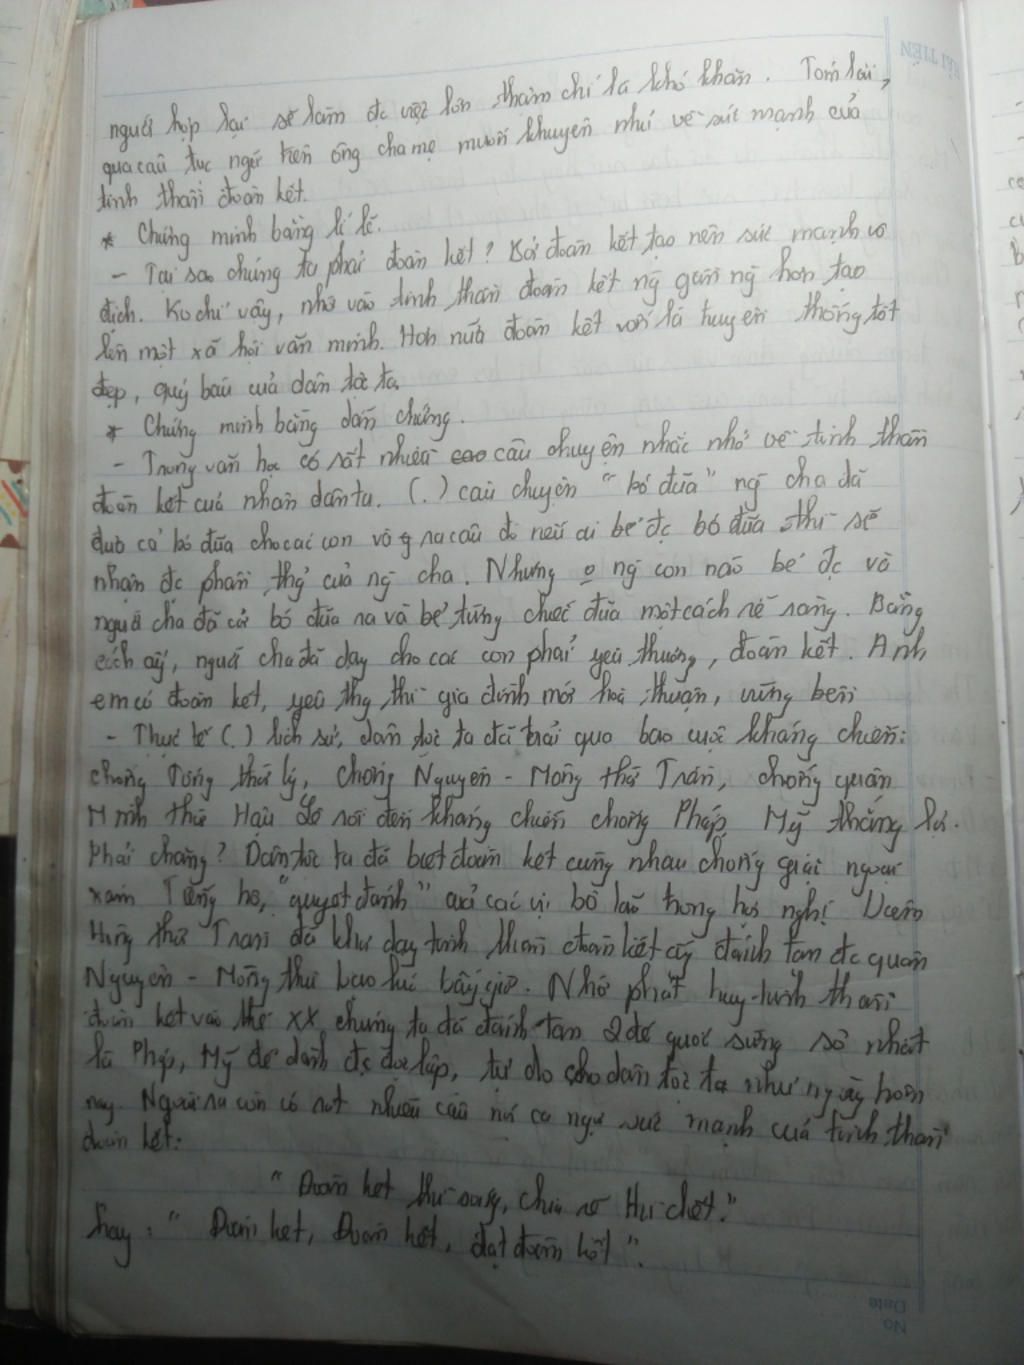 người họp lại sẽ làm đc việc lớn thậm chí là khó khăn. Tóm lại,
qua câu tục ngữ trên ông cha mẹ muốn khuyên như về sức mạnh của
tinh thần đoàn kết.
* Chứng minh bằng lí lẽ.
- Tại sao chúng ta phải đoàn kết? Bởi đoàn kết tạo nên sức mạnh vô
địch. Ko chỉ vậy, nhờ vào tinh thần đoàn kết ng̃ gần ng̃ hơn tạo
lên một xã hội văn minh. Hơn nữa đoàn kết vốn là truyền thống tốt
đẹp, quý báu của dân tộc ta.
* Chứng minh bằng dẫn chứng.
- Trong văn học có rất nhiều câu chuyện nhắc nhở về tinh thần
đoàn kết của nhân dân ta. (.) câu chuyện "bó đũa" ng̃ cha đã
đưa cả bó đũa cho các con và ra câu đố nếu ai bẻ đc bó đũa thì sẽ
nhận đc phần thg̉ của ng̃ cha. Nhưng o ng̃ con nào bẻ đc và
người cha đã cởi bó đũa ra và bẻ từng chiếc đũa một cách rễ ràng. Bằng
cách ấy, người cha đã dạy cho các con phải yêu thương, đoàn kết. Anh
em có đoàn kết, yêu thg thì gia đình mới hoà thuận, vững bền
- Thực tế (.) lịch sử, dân tộc ta đã trải qua bao cuộc kháng chiến:
chống Tống thời Lý, chống Nguyên - Mông thời Trần, chống quân
Minh thời Hậu Lê rồi đến kháng chiến chống Pháp, Mỹ thắng lợi.
Phải chăng? Dân tộc ta đã biết đoàn kết cùng nhau chống giặc ngoại
xâm Tiếng hô, "quyết đánh" của các vị bô lão trong hội nghị Diên
Hồng thời Trần đã khơi dạy tinh thần đoàn kết ấy đánh tan đc quân
Nguyên - Mông thời bấy giờ. Nhờ phát huy tinh thần
đoàn kết vào thế XX, chúng ta đã đánh tan 2 đế quốc sừng sỏ nhất
là Pháp, Mỹ để dành đc độc lập, tự do cho dân tộc ta như ngày hôm
nay. Người ta còn có rất nhiều câu nói ca ngợi sức mạnh của tinh thần
đoàn kết:
"Đoàn kết thì sống, chia rẽ thì chết."
hay: "Đoàn kết, Đoàn kết, đạt đoàn kết".
No.
Date